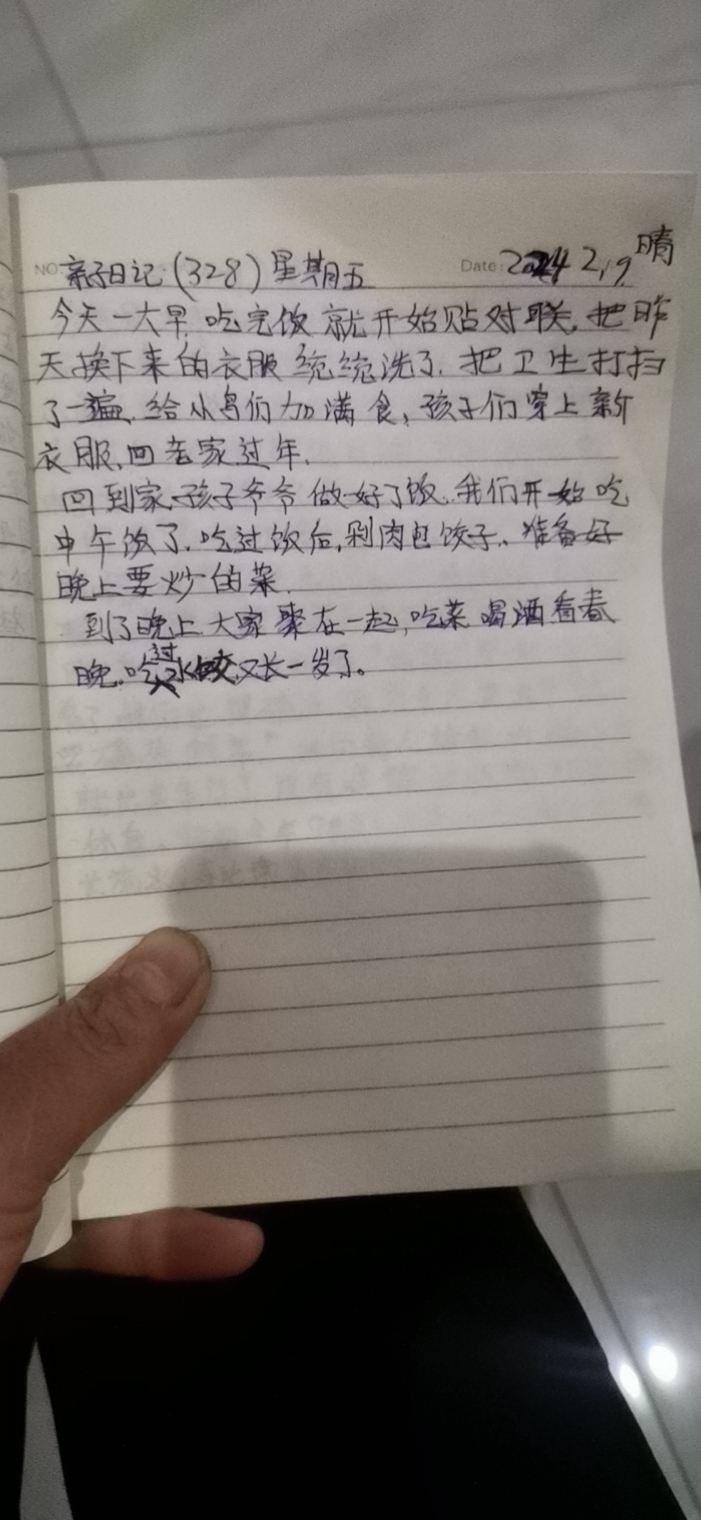 NO. 亲子日记(328)星期五 Date: 2024 2,9 晴
今天一大早,吃完饭就开始贴对联,把昨
天换下来的衣服统统洗了.把卫生打扫
了一遍.给小鸟们加满食,孩子们穿上新
衣服,回老家过年.
回到家孩子爷爷做好了饭.我们开始吃
中午饭了.吃过饭后,剁肉包饺子、准备好
晚上要炒的菜.
到了晚上大家聚在一起,吃菜喝酒看春
晚.吃过水饺又长一岁了。